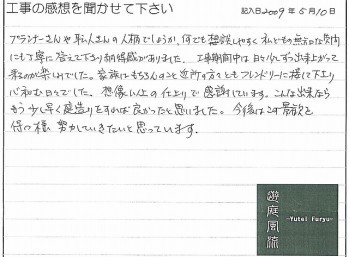 工事の感想を聞かせて下さい
記入日2009年5月10日
プランナーさんや職人さんの人柄でしょうか、何でも相談しやすく私どもの無知な質問
にも丁寧に答えて下さり納得感がありました。工事期間中は日々少しずつ出来上がって
来るのが楽しみでした。家族はもちろんのこと近所の方々ともフレンドリーに接して下さり
心和む日々でした。想像以上の仕上りで感謝しています。こんな出来なら
もう少し早く庭造りをすれば良かったと思いました。今後はこの景観を
保つ様 努力していきたいと思っています。
遊庭風流
-Yutei Furyu-